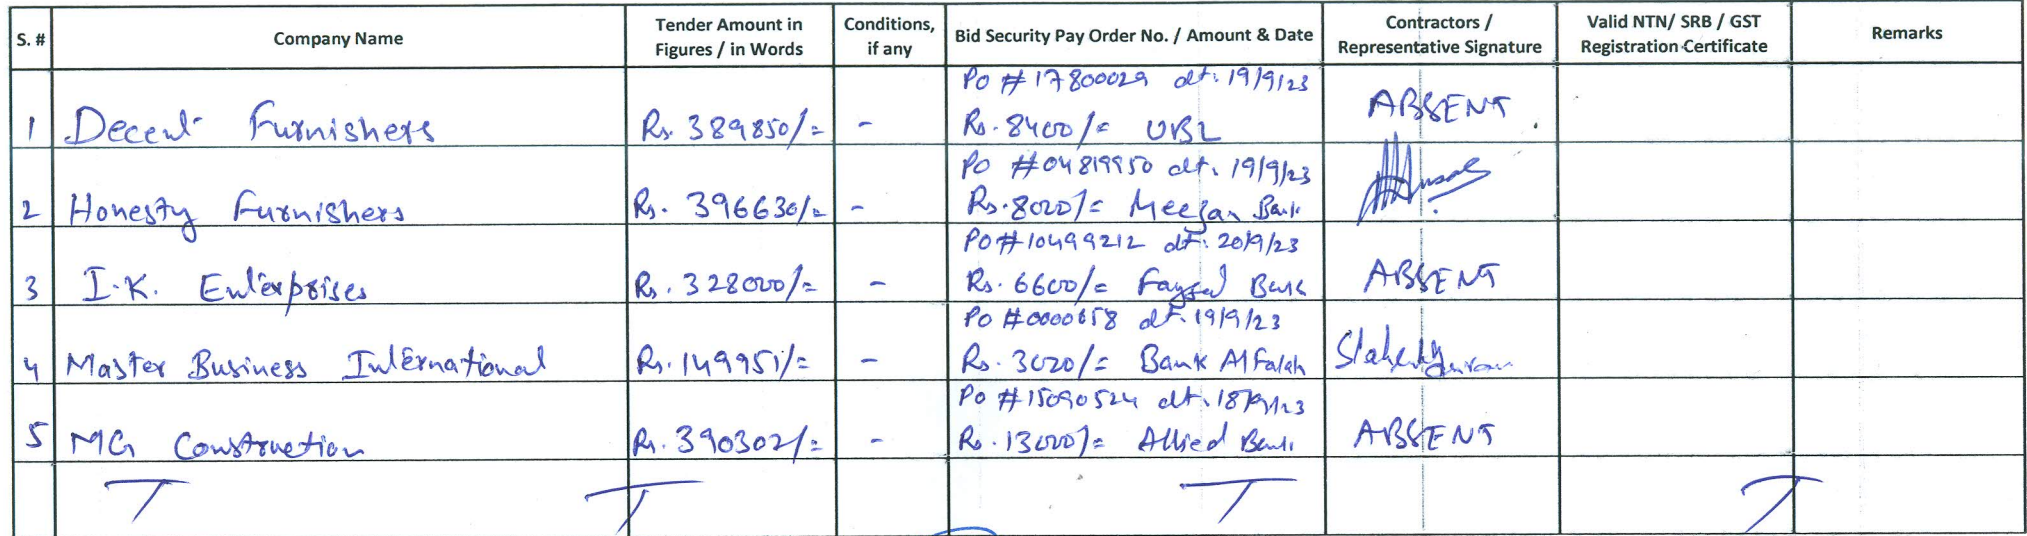 S. #
Company Name
Tender Amount in
Figures / in Words
Conditions,
if any
Bid Security Pay Order No. / Amount & Date
Contractors /
Representative Signature
Valid NTN/ SRB / GST
Registration Certificate
Remarks
1 Decent Furnishers Rs. 389850/= - PO # 17800029 dt. 19/9/23
Rs. 8400/= UBL ABSENT
2 Honesty Furnishers Rs. 396630/= - PO #04819950 dt. 19/9/23
Rs. 8020/= Meezan Bank
3 I.K. Enterprises Rs. 328000/= - PO #10499212 dt. 20/9/23
Rs. 6600/= Faysal Bank ABSENT
4 Master Business International Rs. 149951/= - PO #0000658 dt. 19/9/23
Rs. 3020/= Bank AlFalah
5 MG Construction Rs. 390302/= - PO #15090524 dt. 18/9/23
Rs. 13000/= Allied Bank ABSENT